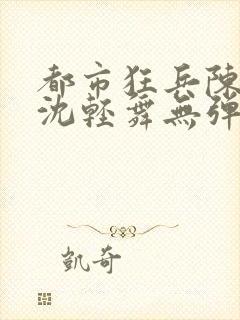 都市狂兵陳
沈輕舞無彈
凱奇